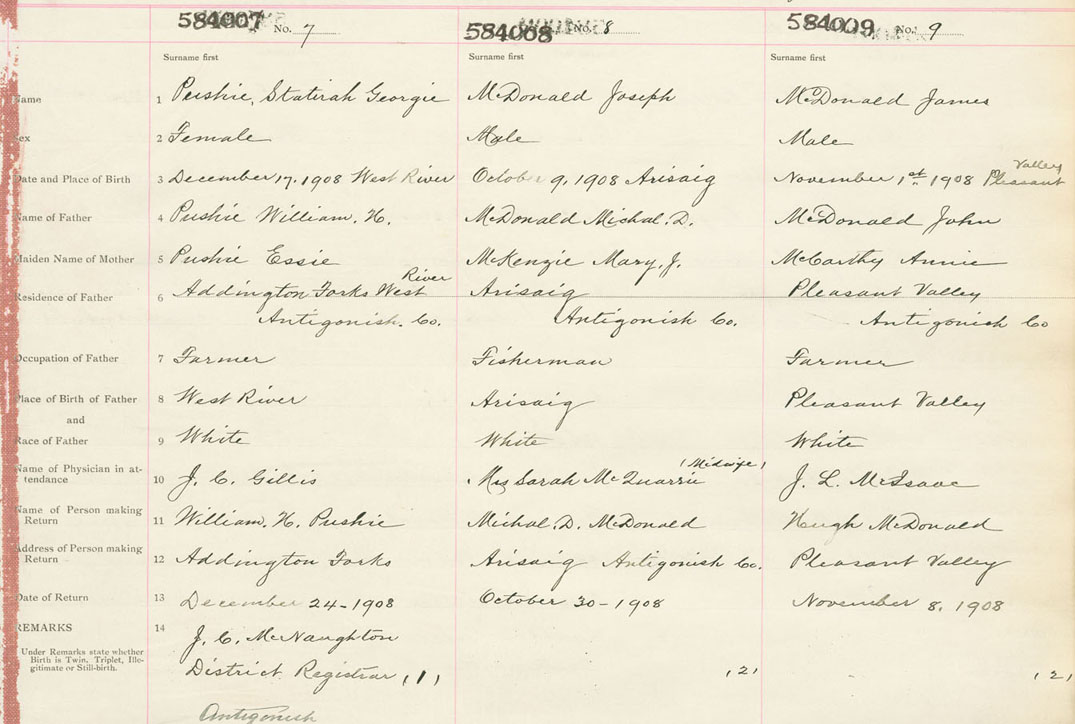 584007 No. 7 584008 No. 8 584009 No. 9
Surname first Surname first Surname first
Name 1 Pushie, Statirah Georgie McDonald Joseph McDonald James
Sex 2 Female Male Male
Valley
Date and Place of Birth 3 December 17, 1908 West River October 9, 1908 Arisaig November 1st 1908 Pleasant
Name of Father 4 Pushie William. H. McDonald Michal. D. McDonald John
Maiden Name of Mother 5 Pushie Essie McKenzie Mary, J. McCarthy Annie
River
Residence of Father 6 Addington Forks West Arisaig Pleasant Valley
Antigonish. Co. Antigonish Co. Antigonish Co
Occupation of Father 7 Farmer Fisherman Farmer
Place of Birth of Father 8 West River Arisaig Pleasant Valley
and
Race of Father 9 White White White
(Midwife)
Name of Physician in at-
tendance 10 J. C. Gillis Mrs Sarah McQuarrie J. L. McIsaac
Name of Person making
Return 11 William. H. Pushie Michal. D. McDonald Hugh McDonald
Address of Person making
Return 12 Addington Forks Arisaig Antigonish Co. Pleasant Valley
Date of Return 13 December 24-1908 October 30-1908 November 8, 1908
REMARKS 14 J. C. McNaughton
Under Remarks state whether
Birth is Twin, Triplet, Ille-
gitimate or Still-birth.
District Registrar (1) (2) (2)
Antigonish